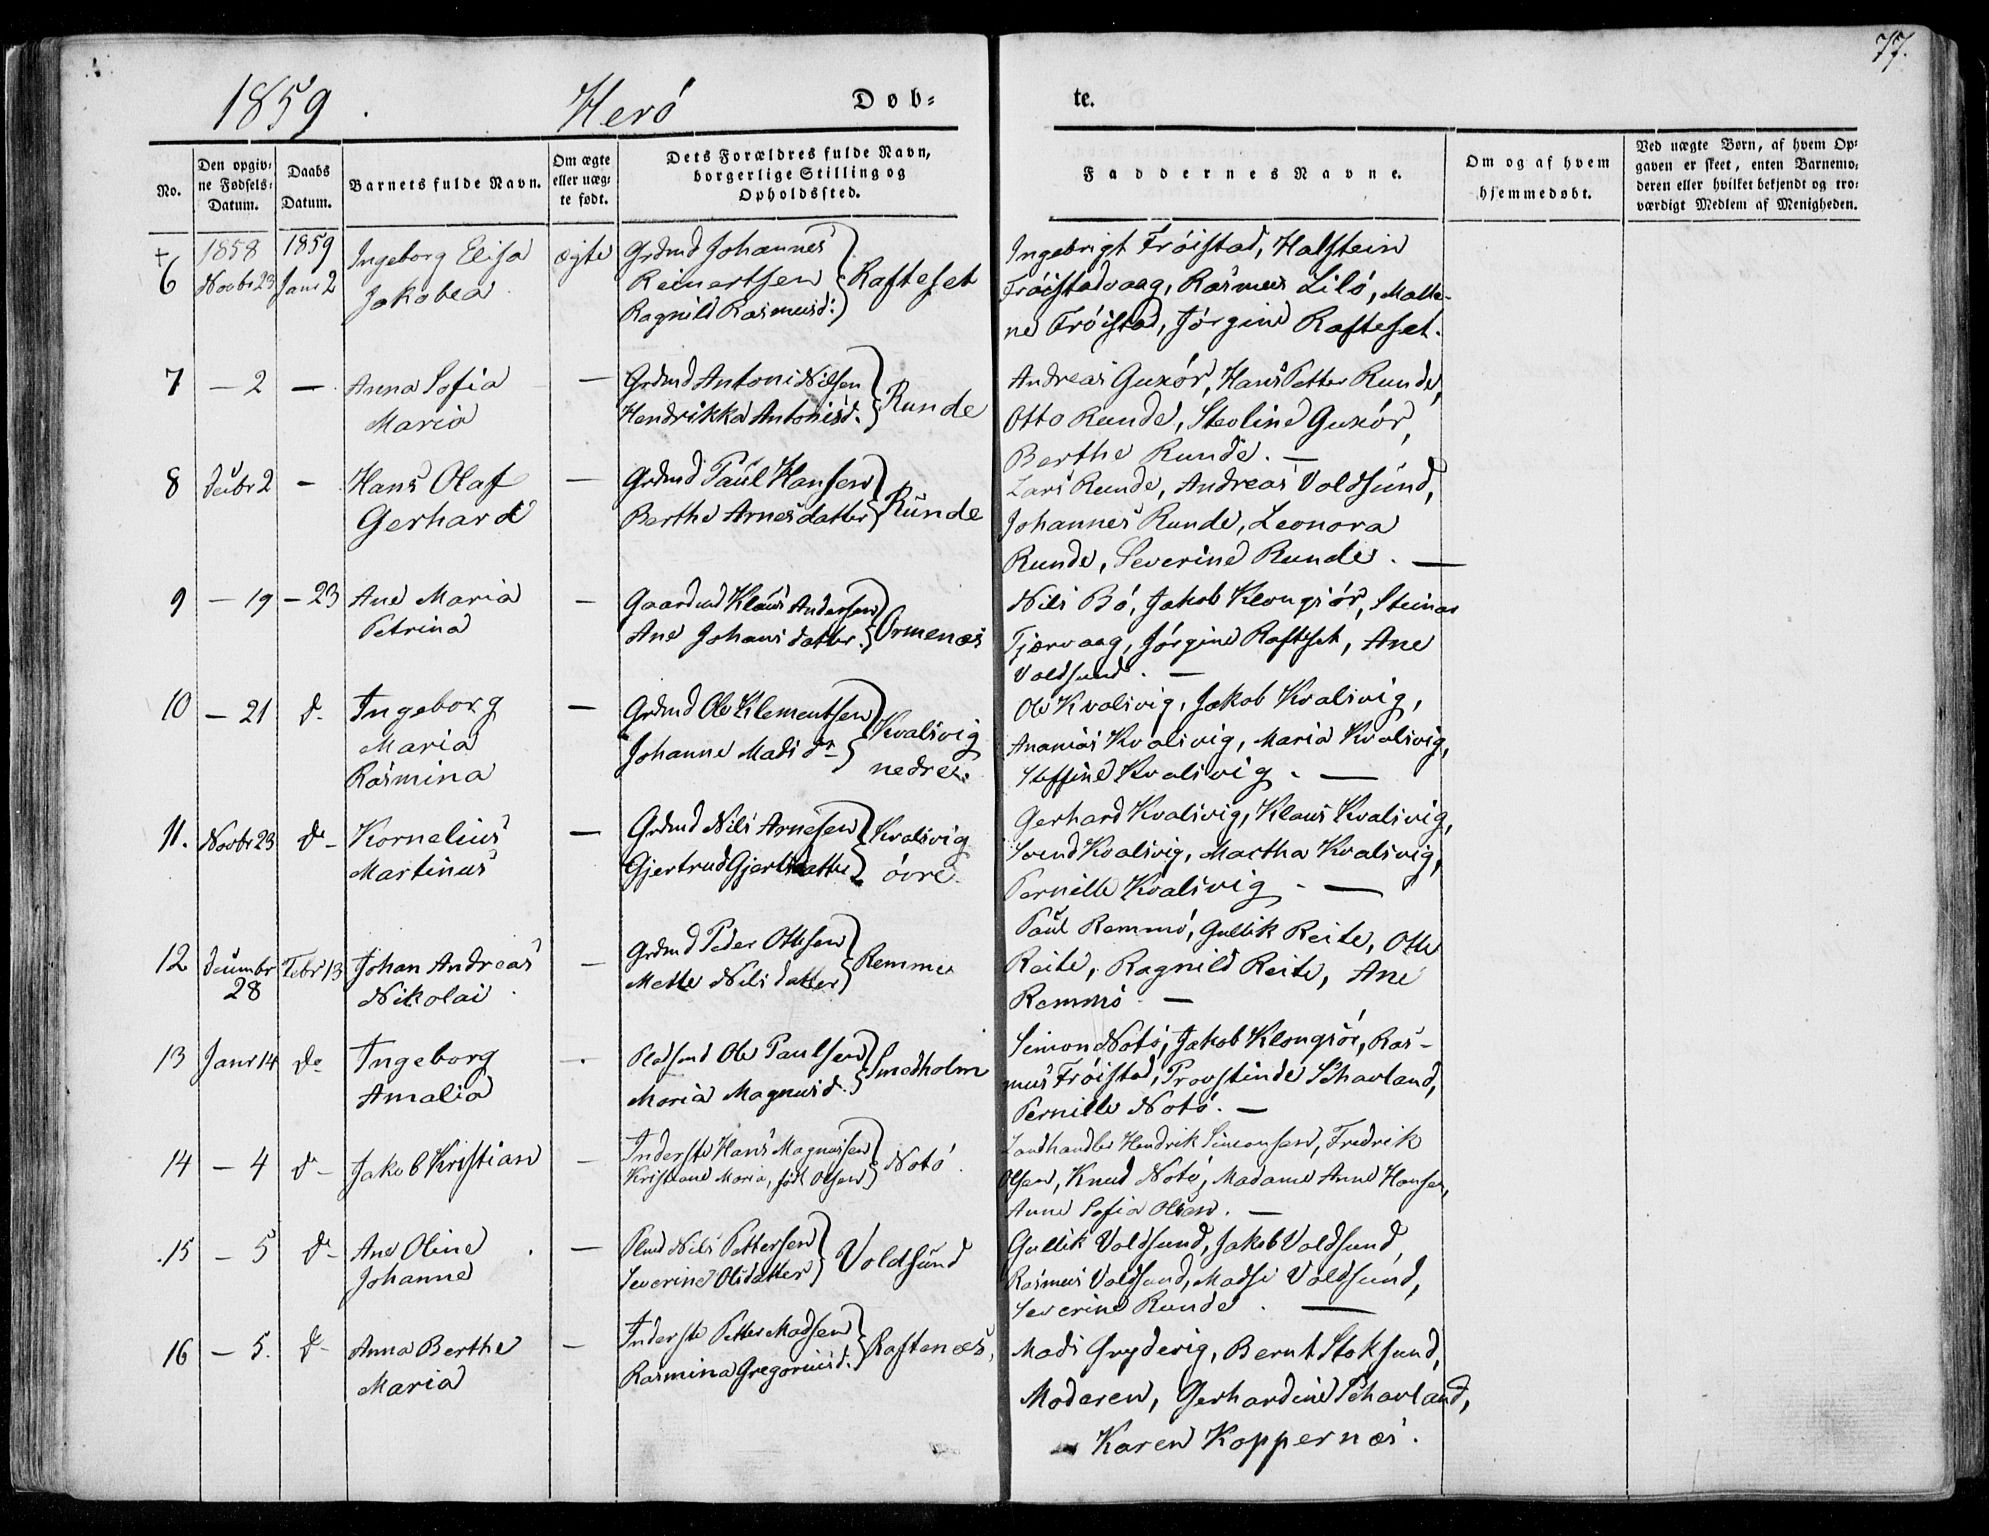 77.
1859. Herö Döb-te.
No.
Den opgiv-
ne Fødsels-
Datum.
Daabs
Datum.
Barnets fulde Navn.
Om ægte
eller uæg-
te født.
Dets Forældres fulde Navn,
borgerlige Stilling og
Opholdssted.
Faddernes Navne.
Om og af hvem
hjemmedøbt.
Ved uægte Børn, af hvem Op-
gaven er skeet, enten Barnemo-
deren eller hvilket bekjendt og tro-
værdigt Medlem af Menigheden.
+ 1858 1859
6 Novbr 23 Janr 2 Ingeborg Elisa ægte Grdmd Johannes
Jakobea Reinertsen Rafteset
Ragnild Rasmusd:
Ingebrigt Fröistad, Halstein
Fröistadvaag, Rasmus Lilö, Malle-
ne Fröistad, Jörgine Rafteset.
7 — 2 — Anna Sofia — Grdmd Antoni Nilsen
Maria Hendrikka Antonisd. Runde
Andreas Gunör, Hans Petter Runde,
Otto Runde, Steoline Gunör,
Berthe Runde. —
8 Decbr 2 — Hans Olaf — Grdmd Paul Hansen
Gerhard Berthe Arnesdatter Runde
Lars Runde, Andreas Voldsund,
Johannes Runde, Leonora
Runde, Severine Runde. —
9 — 19 — 23 Ane Maria — Gaardmd Klaus Andersen
Petrina Ane Johansdatter. Ormenæs
Nils Bö, Jakob Klongsör, Steinar
Tjærvaag, Jörgine Rafteset, Ane
Voldsund. —
10 — 21 d- Ingeborg — Grdmd Ole Klementsen Kvalsvig
Maria Johanne Madsdr nedre.
Rasmina
Ole Kvalsvig, Jakob Kvalsvig,
Ananias Kvalsvig, Maria Kvalsvig,
Steffine Kvalsvig. —
11. Novbr 23 do- Kornelius — Grdmd Nils Arnesen Kvalsvig
Martinus Gjertrud Gjertsdatter övre.
Gerhard Kvalsvig, Klaus Kvalsvig,
Svend Kvalsvig, Martha Kvalsvig,
Pernille Kvalsvig. —
12 Decembr Febr 13 Johan Andreas — Grdmd Peder Ottesen
28 Nikolai Mette Nilsdatter Remmö
Paul Remmö, Gullik Reite, Otte
Reite, Ragnild Reite, Ane
Remmö. —
13 Janr 14 do Ingeborg Pladsmd Ole Paulsen
Amalia Maria Magnusd. Smedholm
Simon Notö, Jakob Klongsör, Ras-
mus Fröistad, Provstinde Schavland,
Pernille Notö. —
14 — 4 d- Jakob Kristian — Inderste Hans Magnussen
Kristiane Maria, født Olsen Notö.
Landhandler Hendrik Simonsen, Fredrik
Olsen, Knud Notö, Madame Anne Hansen,
Anne Sofia Olsen. —
15 — 5 d- Ane Oline — Plmd Nils Pettersen
Johanne Severine Olsdatter Voldsund
Gullik Voldsund, Jakob Voldsund,
Rasmus Voldsund, Madsi Voldsund,
Severine Runde. —
16 — 5. d- Anna Berthe — Inderste Petter Madsen
Maria Rasmina Gregoriusd. Raftenæs,
Mads Frydevig, Bernt Stoksund,
Moderen, Gerhardine Schavland,
Karen Koppernæs.